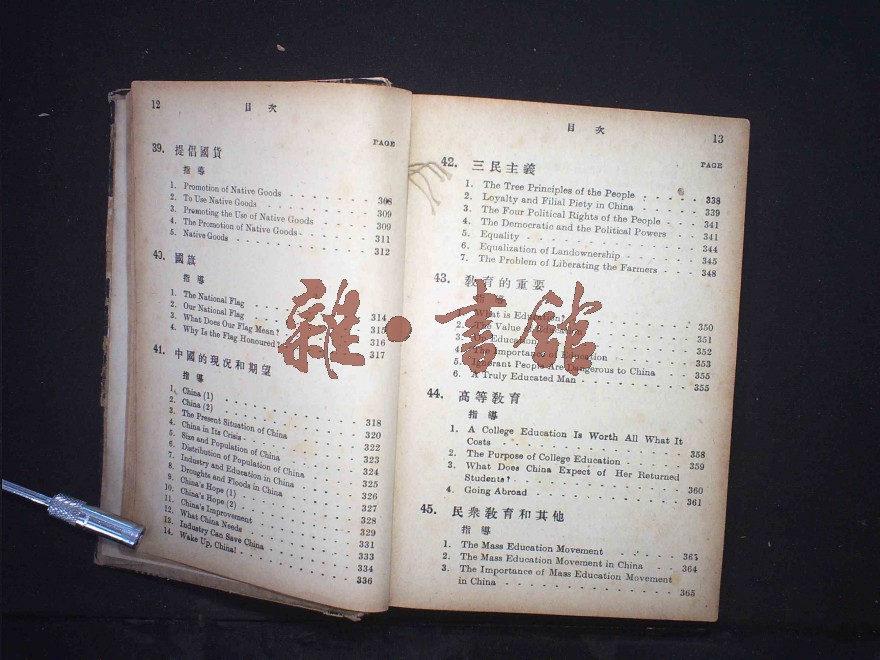 12
目 次
PAGE
39. 提倡國貨
指 導
1. Promotion of Native Goods - - - - - 308
2. To Use Native Goods - - - - - 309
3. Promoting the Use of Native Goods - - - 309
4. The Promotion of Native Goods - - - - 311
5. Native Goods - - - - - 312
40. 國旗
指 導
1. The National Flag - - - - - 314
2. Our National Flag - - - - - 315
3. What Does Our Flag Mean? - - - - 316
4. Why Is the Flag Honoured - - - - 317
41. 中國的現況和期望
指 導
1. China (1) - - - - - 318
2. China (2) - - - - - 320
3. The Present Situation of China - - - - 322
4. China in Its Crisis - - - - - 323
5. Size and Population of China - - - - 324
6. Distribution of Population of China - - - 325
7. Industry and Education in China - - - - 326
8. Droughts and Floods in China - - - - 327
9. China's Hope (1) - - - - - 328
10. China's Hope (2) - - - - - 329
11. China's Improvement - - - - - 331
12. What China Needs - - - - - 333
13. Industry Can Save China - - - - - 334
14. Wake Up, China! - - - - - 336
目 次
13
PAGE
42. 三民主義
1. The Tree Principles of the People - - - - 338
2. Loyalty and Filial Piety in China - - - - 339
3. The Four Political Rights of the People - - - 341
4. The Democratic and the Political Powers - - 341
5. Equality - - - - - 344
6. Equalization of Landownership - - - - 345
7. The Problem of Liberating the Farmers - - - 348
43. 敎育的重要
指 導
1. What is Education? - - - - - 350
2. The Value of Education - - - - - 351
3. On Education - - - - - 352
4. The Importance of Education - - - - 353
5. Ignorant People Are Dangerous to China - - 355
6. A Truly Educated Man - - - - - 355
44. 高等敎育
指 導
1. A College Education Is Worth All What It
Costs - - - - - 358
2. The Purpose of College Education - - - - 359
3. What Does China Expect of Her Returned
Students? - - - - - 360
4. Going Abroad - - - - - 361
45. 民衆敎育和其他
指 導
1. The Mass Education Movement - - - - 363
2. The Mass Education Movement in China - - 364
3. The Importance of Mass Education Movement
in China - - - - - 365
雜·書館